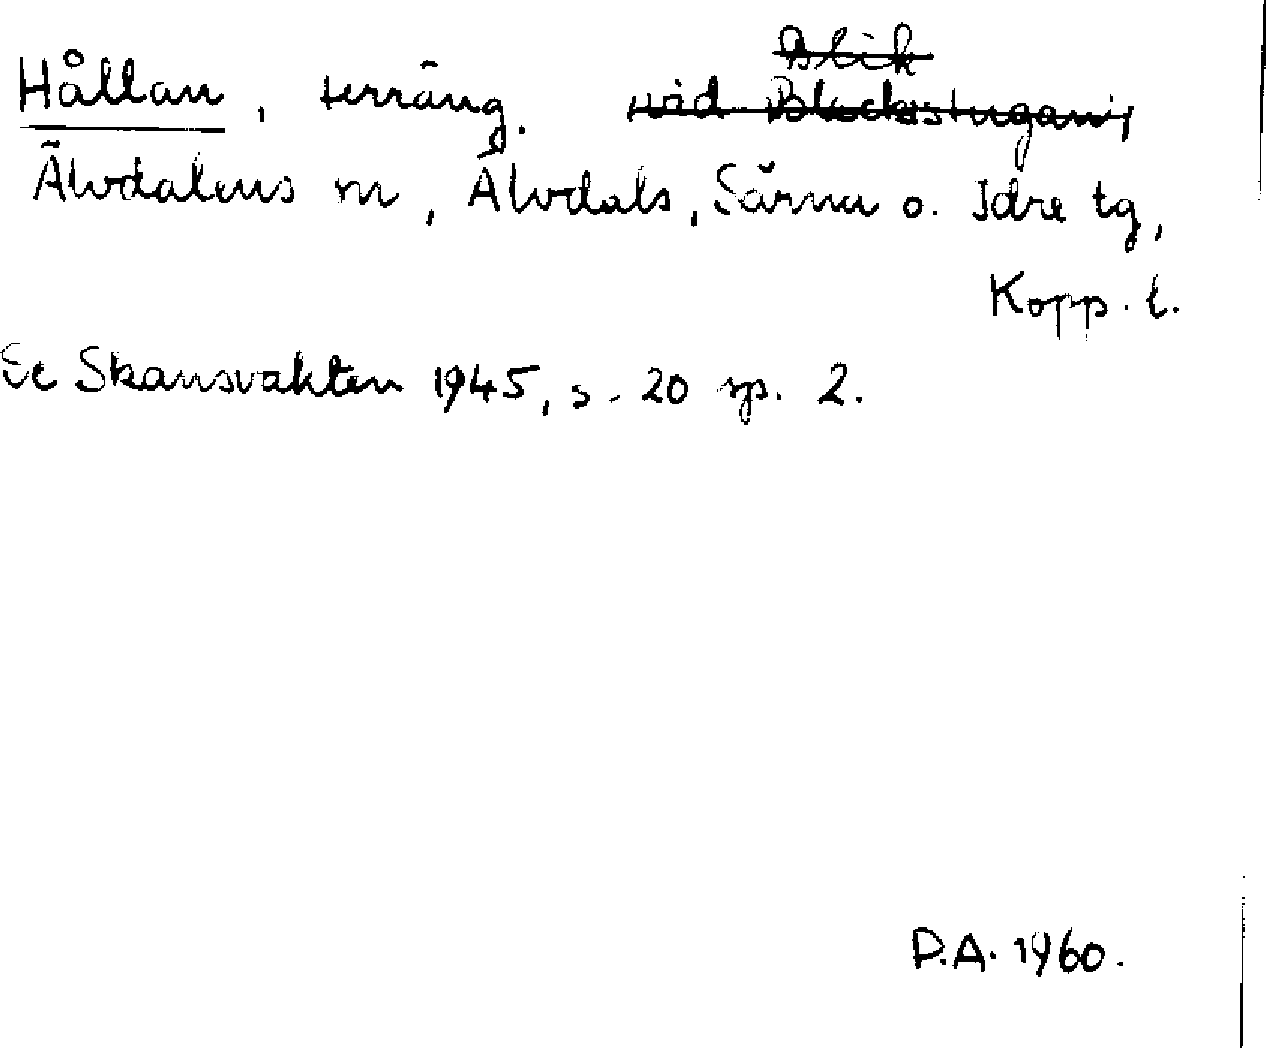 Hållan, terräng. vid Blik
Älvdalens sn, Älvdals, Särna o. Idre tg,
Kopp. l.
Se Skansvakten 1945, s. 20 sp. 2.
D.A. 1960.